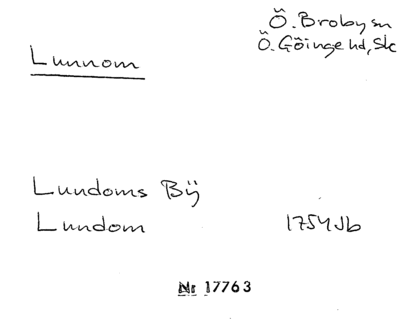 Ö. Broby sn
Ö. Göinge hd, Sk
Lunnom
Lundoms Bÿ
Lundom 1754 Jb
Nr 17763